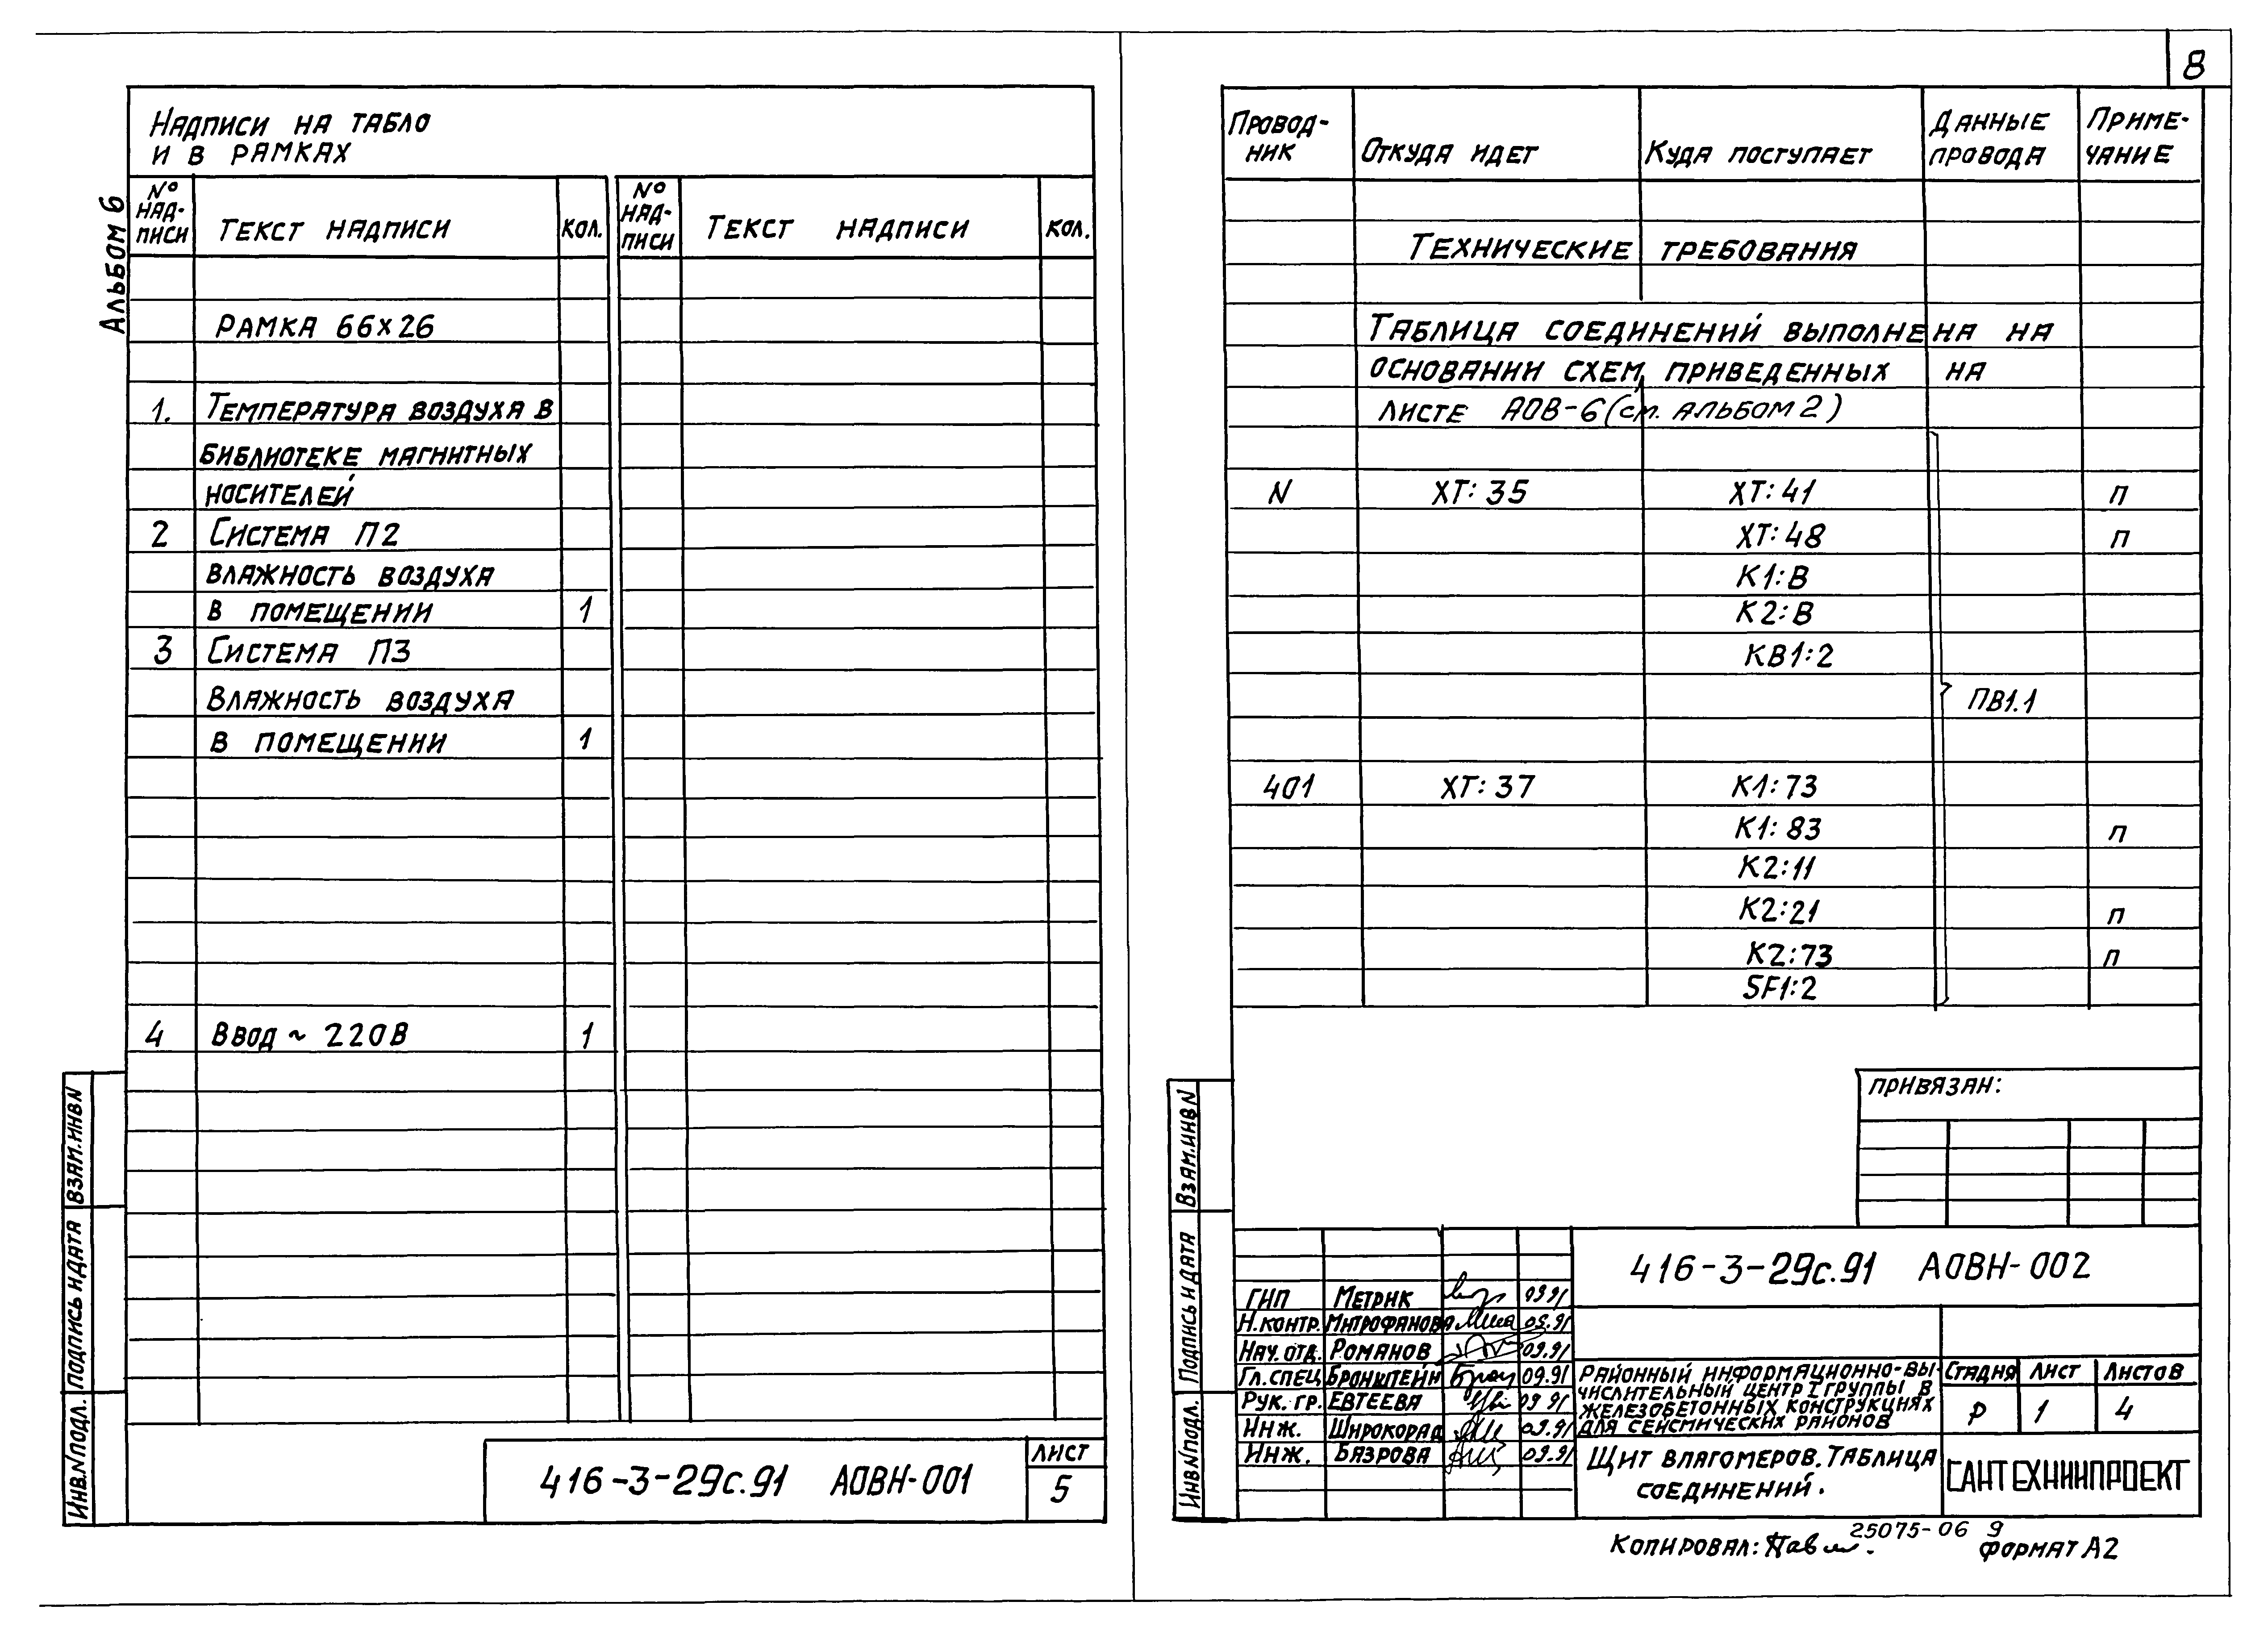 8
Альбом 6
Надписи на табло
и в рамках
№ надписи Текст надписи Кол. № надписи Текст надписи Кол.
Рамка 66×26
1. Температура воздуха в
библиотеке магнитных
носителей
2 Система П2
влажность воздуха
в помещении 1
3 Система П3
Влажность воздуха
в помещении 1
4 Ввод ~ 220В 1
Взам.инв N
Подпись и дата
Инв.N подл.
416-3-29с.91 АОВН-001
Лист
5
Провод- Откуда идет Куда поступает Данные Приме-
ник провода чание
Технические требования
Таблица соединений выполнена на
основании схем, приведенных на
листе АОВ-6 (см. альбом 2)
N ХТ:35 ХТ:41 п
ХТ:48 п
К1:В
К2:В
КВ1:2
ПВ1.1
401 ХТ:37 К1:73
К1:83 п
К2:11
К2:21 п
К2:73 п
SF1:2
Привязан:
Взам.инв N
Подпись и дата
Инв.N подл.
416-3-29с.91 АОВН-002
ГИП Метрик 09.91
Н.контр. Митрофанова 09.91
Нач. отд. Романов 09.91
Гл.спец Бронштейн 09.91
Рук. гр. Евтеева 09.91
Инж. Широкорад 09.91
Инж. Базрова 09.91
Районный информационно-вы-
числительный центр I группы в
железобетонных конструкциях
для сейсмических районов
Стадия Лист Листов
Р 1 4
Щит влагомеров. Таблица
соединений.
САНТЕХНИИПРОЕКТ
25075-06 9
Копировал: Формат А2